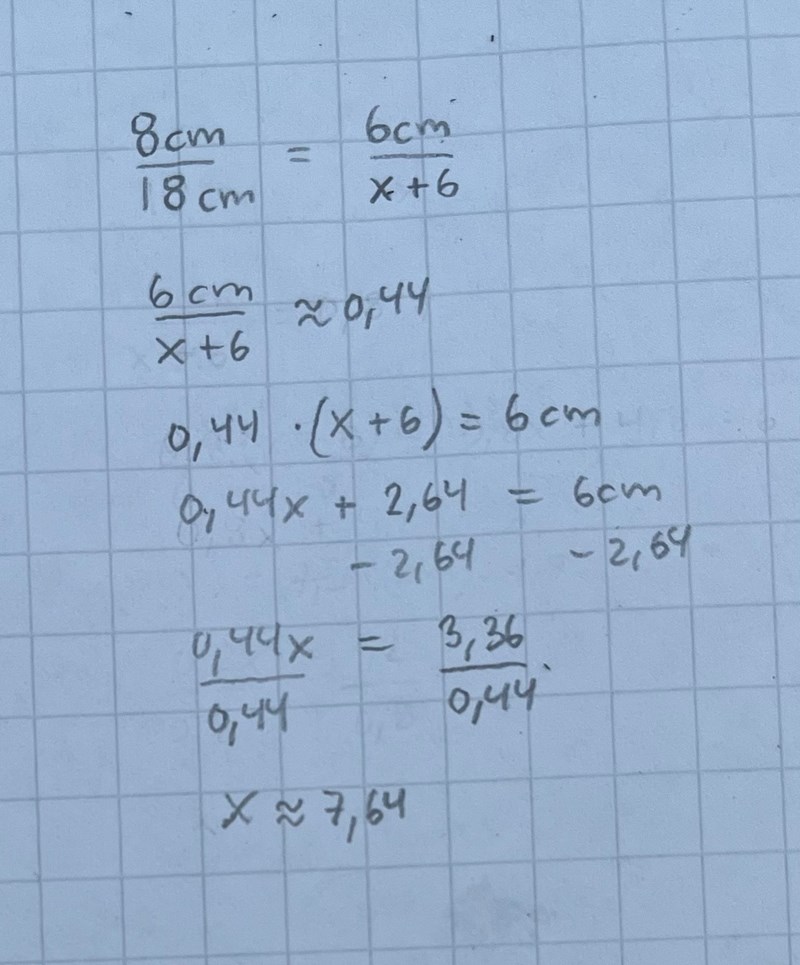 8cm/18cm = 6cm/x+6
6cm/x+6 ≈ 0,44
0,44 · (x+6) = 6cm
0,44x + 2,64 = 6cm
- 2,64 - 2,64
0,44x/0,44 = 3,36/0,44
x ≈ 7,64